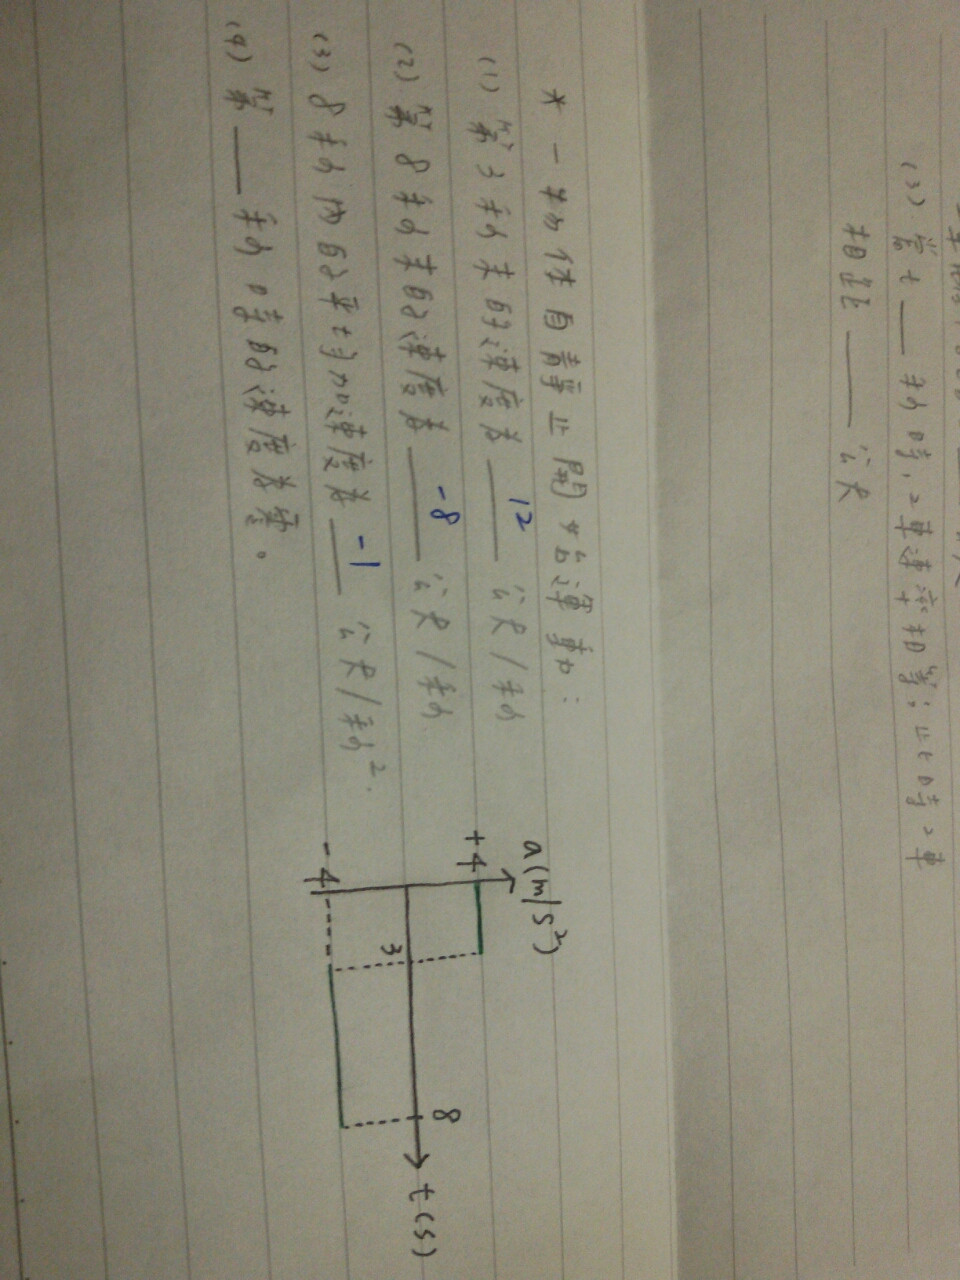 (3) 當 t ___ 秒時,2車速率相等;此時2車
相距 ___ 公尺
* 一物體自靜止開始運動:
(1) 第3秒末的速度為 12 公尺/秒
(2) 第8秒末的速度為 -8 公尺/秒
(3) 8秒內的平均加速度為 -1 公尺/秒².
(4) 第 ___ 秒時的速度為零。
a(m/s²)
+4
3
8
t(s)
-4